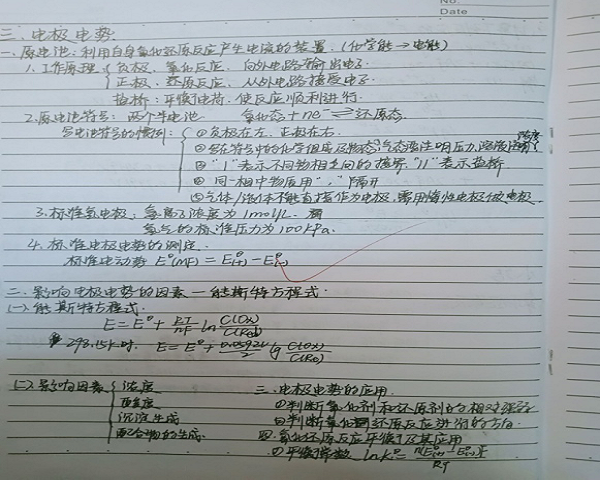 No.
Date
三、电极电势
一、原电池:利用自身氧化还原反应产生电流的装置。(化学能→电能)
1.工作原理 { 负极、氧化反应、向外电路输出电子.
正极、还原反应、从外电路接受电子
盐桥:平衡电荷.使反应顺利进行.
2.原电池符号: 两个半电池 氧化态 + ne⁻ ⇌ 还原态.
写电池符号的惯例: ①负极在左、正极在右.
②电池符号中的化学组成及物态,气态要注明压力,溶液
③"|"表示不同物相之间的接界."||"表示盐桥
④同一相中物质用","隔开
⑤气体/液体不能直接作为电极,需用惰性电极做电极
3.标准氢电极: 氢离子浓度为1mol/L.
氢气的标准压力为100kPa.
4.标准电极电势的测定.
标准电动势 E°(MF) = E°(+) - E°(-)
二、影响电极电势的因素 — 能斯特方程式.
(一)能斯特方程式.
E = E° + RT/nF ln C(Ox)/C(Red)
298.15K时. E = E° + 0.0592V/Z lg C(OX)/C(Re)
(二)影响因素 { 浓度 三、电极电势的应用.
酸度 ①判断氧化剂和还原剂的相对强弱
沉淀生成 ②判断氧化还原反应进行的方向.
配合物的生成. 四.氧化还原反应平衡及其应用
①平衡常数 lnK° = n(E°(+) - E°(-))F/RT